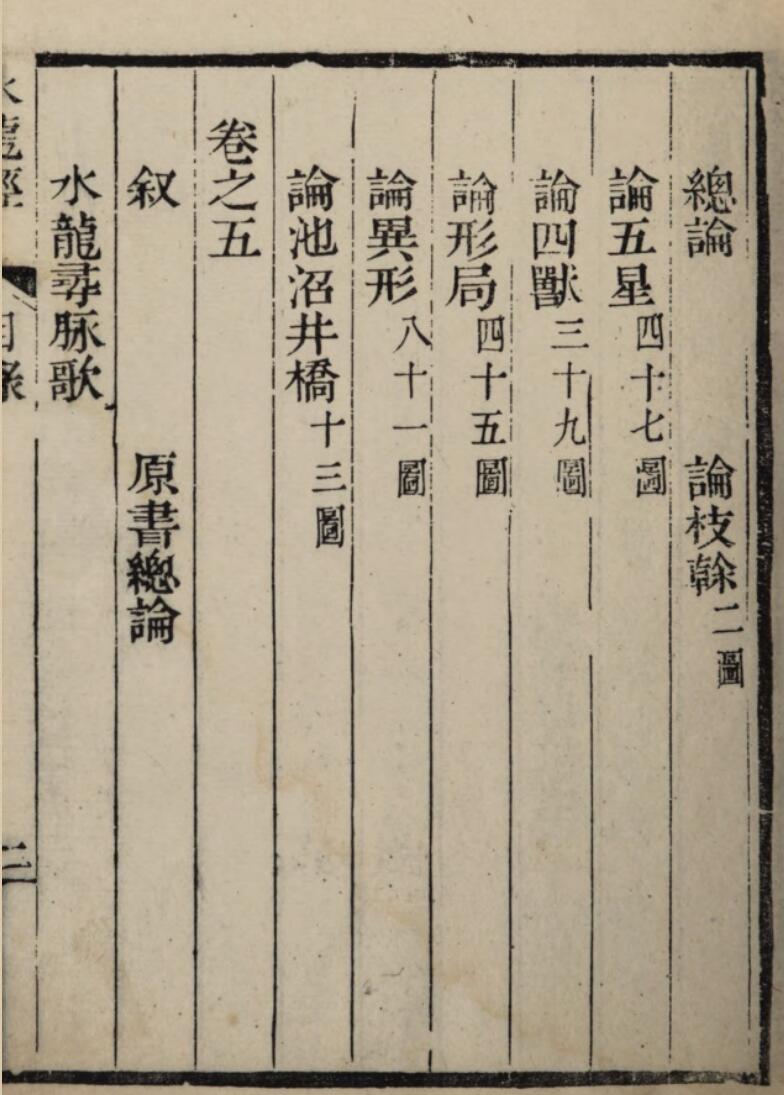 總論 論枝榦二圖
論五星四十七圖
論四獸三十九圖
論形局四十五圖
論異形八十一圖
論池沼井橋十三圖
卷之五
叙 原書總論
水龍尋脉歌
水龍經 目錄 二